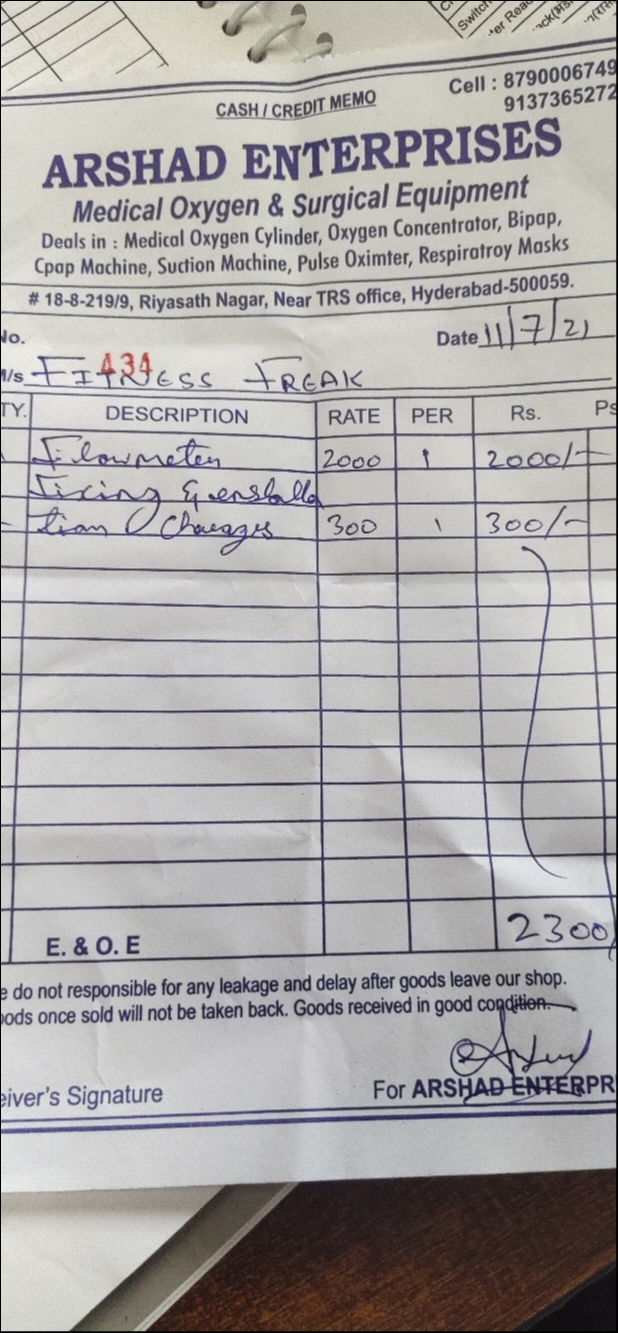 Switch
er Rea
ack(
Cell : 8790006749
9137365272
CASH / CREDIT MEMO
ARSHAD ENTERPRISES
Medical Oxygen & Surgical Equipment
Deals in : Medical Oxygen Cylinder, Oxygen Concentrator, Bipap,
Cpap Machine, Suction Machine, Pulse Oximter, Respiratroy Masks
# 18-8-219/9, Riyasath Nagar, Near TRS office, Hyderabad-500059.
No. 434 Date 11/7/21
M/s FITNESS FREAK
TY. DESCRIPTION RATE PER Rs. Ps
Flowmeter 2000 1 2000/-
Fixing & enstalla
tion Charges 300 1 300/-
2300/
E. & O. E
e do not responsible for any leakage and delay after goods leave our shop.
oods once sold will not be taken back. Goods received in good condition.
eiver's Signature For ARSHAD ENTERPR